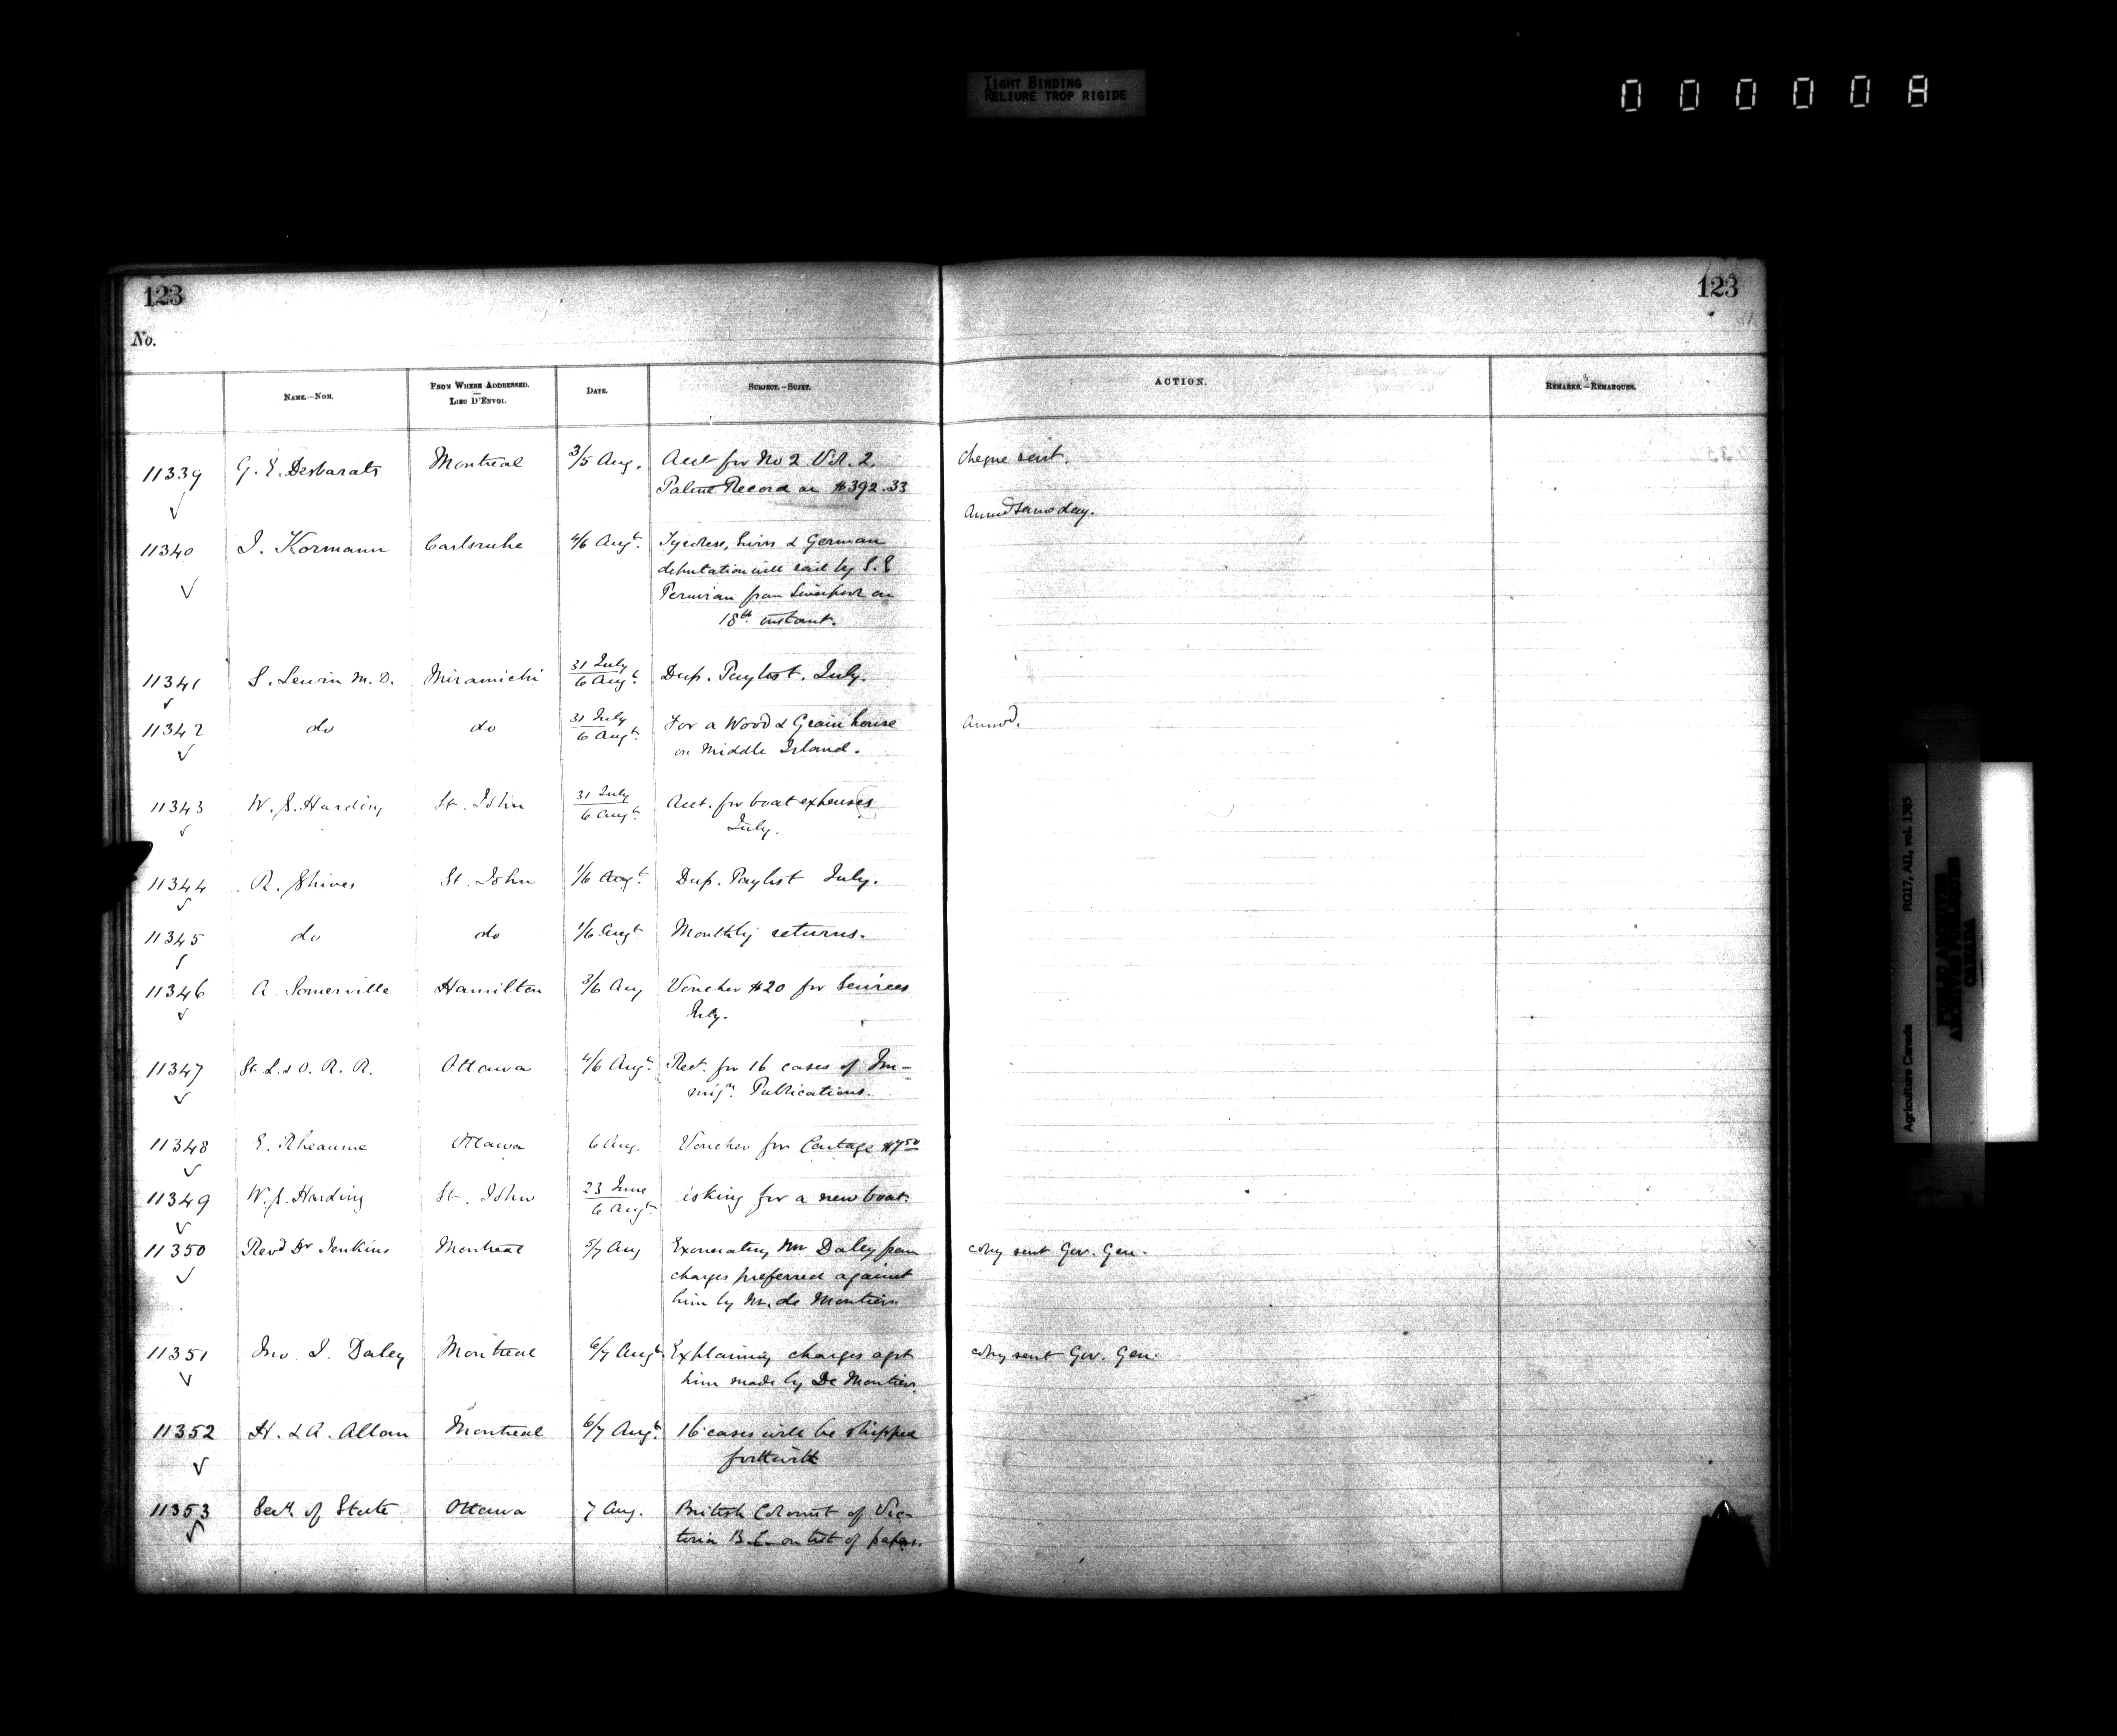 TIGHT BINDING
RELIURE TROP RIGIDE
000008
123
123
No.
NAME.—NOM.
FROM WHERE ADDRESSED.
—
LIEU D'ENVOI.
DATE.
SUBJECT.—SUJET.
ACTION.
REMARKS.—REMARQUES.
11339 G. E. Desbarats Montreal 3/5 Aug. Acct for No 2 Vol. 2, cheque sent.
Patent Record on $392.33
Answd same day.
11340 J. Kormann Carlsruhe 4/6 Augt. Tyrolese, Swiss & German
deputation will sail by S. S
Peruvian from Liverpool on
18th instant.
11341 S. Lewin M. D. Miramichi 31 July / 6 Augt. Dup. Paylist. July.
11342 do do 31 July / 6 Augt. For a Wood & Grain house Answd.
on Middle Island.
11343 W. S. Harding St. John 31 July / 6 Augt. Acct. for boat expenses
July.
11344 R. Shives St. John 1/6 Augt. Dup. Paylist July.
11345 do do 1/6 Augt Monthly returns.
11346 A. Somerville Hamilton 3/6 Aug Voucher $20 for Services
July.
11347 St. L. & O. R. R. Ottawa 4/6 Augt. Rect. for 16 cases of Im-
mign. Publications.
11348 E. Rheaume Ottawa 6 Aug. Voucher for Cartage $7 50
11349 W. S. Harding St. John 23 June / 6 Augt. isking for a new boat.
11350 Revd Dr Jenkins Montreal 5/7 Aug Exonerating Mr Daley from copy sent Gov. Gen.
charges preferred against
him by M. de Montier.
11351 Jno. J. Daley Montreal 6/7 Augt. Explaining charges agst copy sent Gov. Gen.
him made by De Montier.
11352 H. & A. Allan Montreal 6/7 Augt. 16 cases will be shipped
forthwith
11353 Secy. of State Ottawa 7 Aug. British Colonist of Vic-
toria B. C. on list of papers.
Agriculture Canada RG17, AII, vol. 1385
PUBLIC ARCHIVES
ARCHIVES PUBLIQUES
CANADA